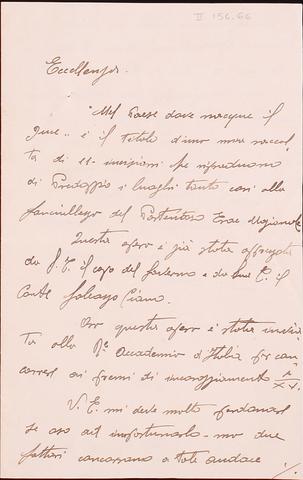 II 156.66
Eccellenza.
"Nel Paese dove nacque il
Duce" è il titolo d'una mia raccol
ta di 15 incisioni che riproducono
di Predappio i luoghi tanto cari alla
fanciullezza del Portentoso Eroe
Questa opera è già stata apprezzata
da S. E. il capo del Governo e da S. E. il
Conte Galeazzo Ciano.
Ora questa opera è stata invia
ta alla R. Accademia d'Italia per con
correre ai premi di incoraggiamento
V. E. mi deve molto perdonare
se oso importunarla - ma due
fattori concorrono a tale audacia